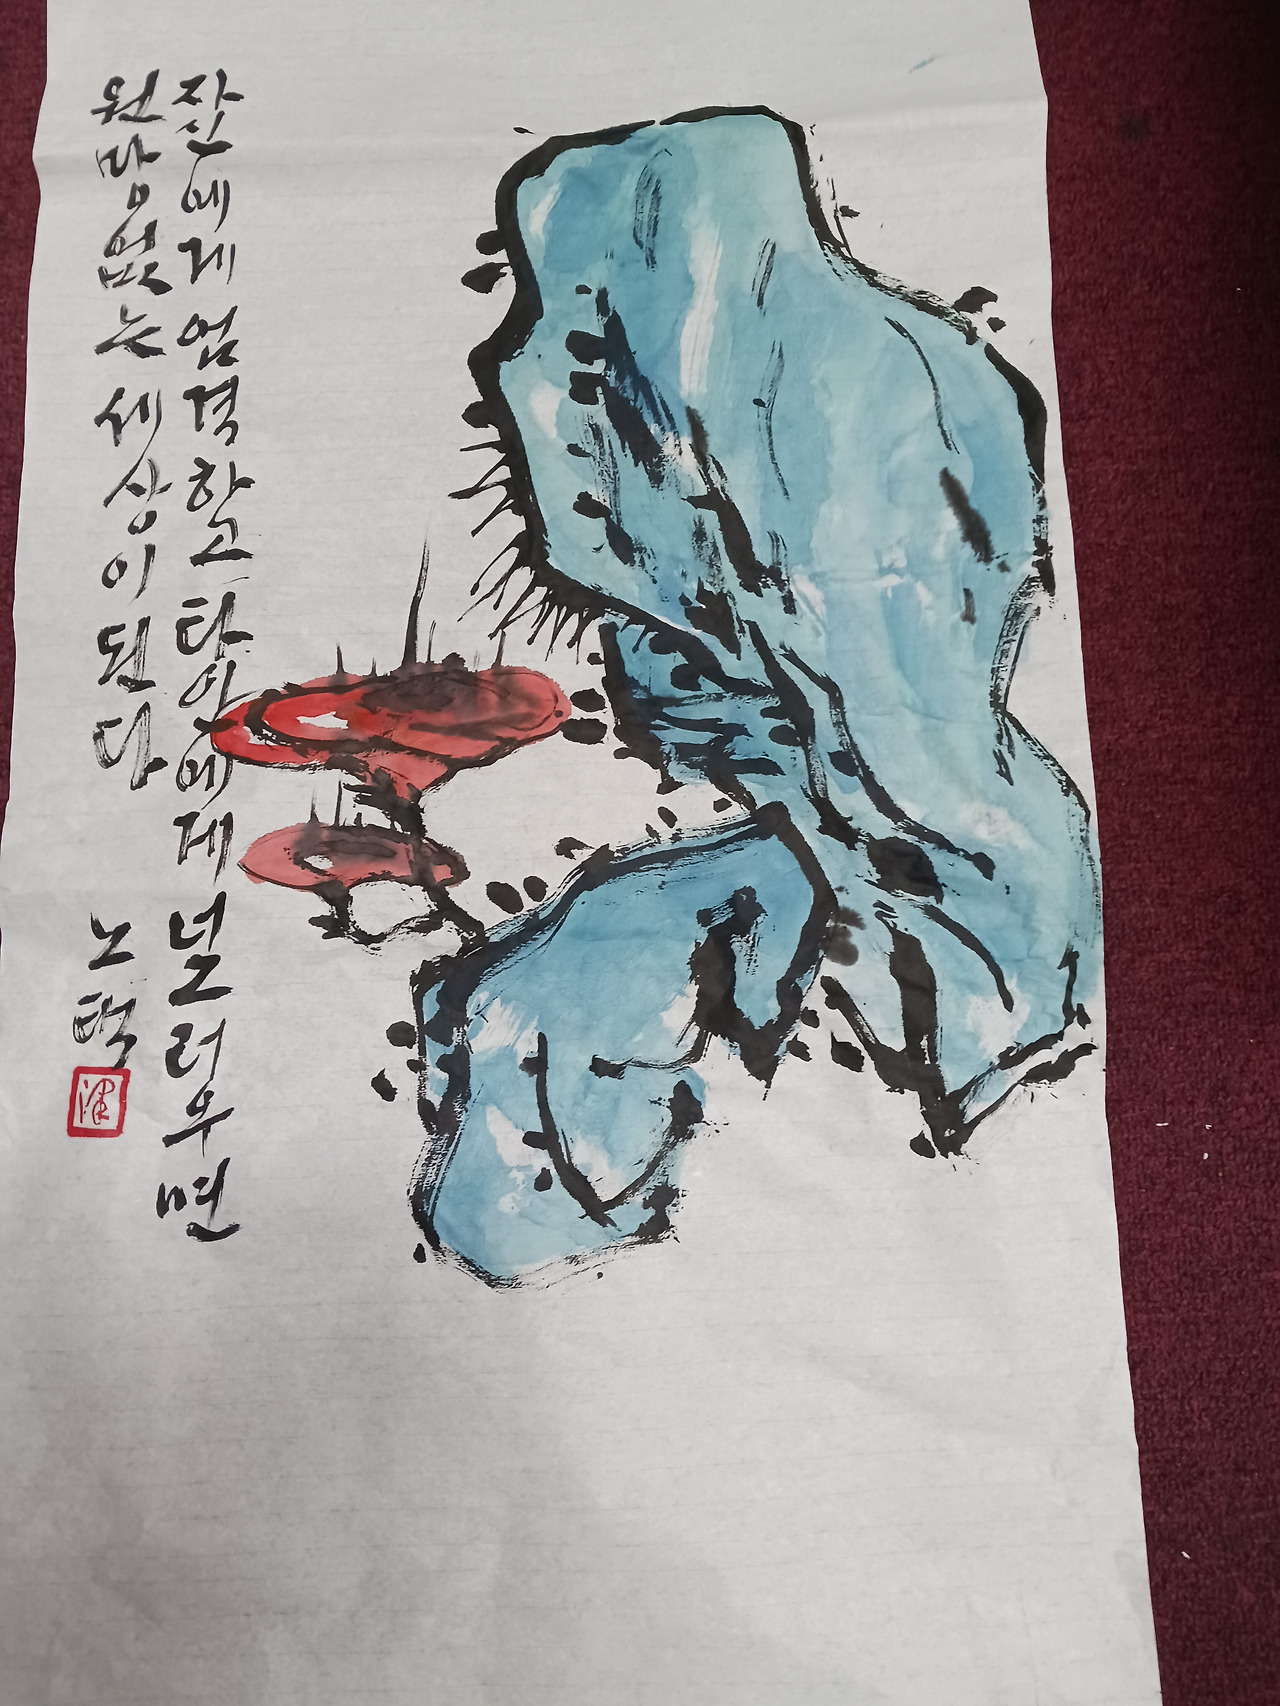 자신에게 엄격하고 타인에게 너그러우면
원망없는 세상이 된다
노택